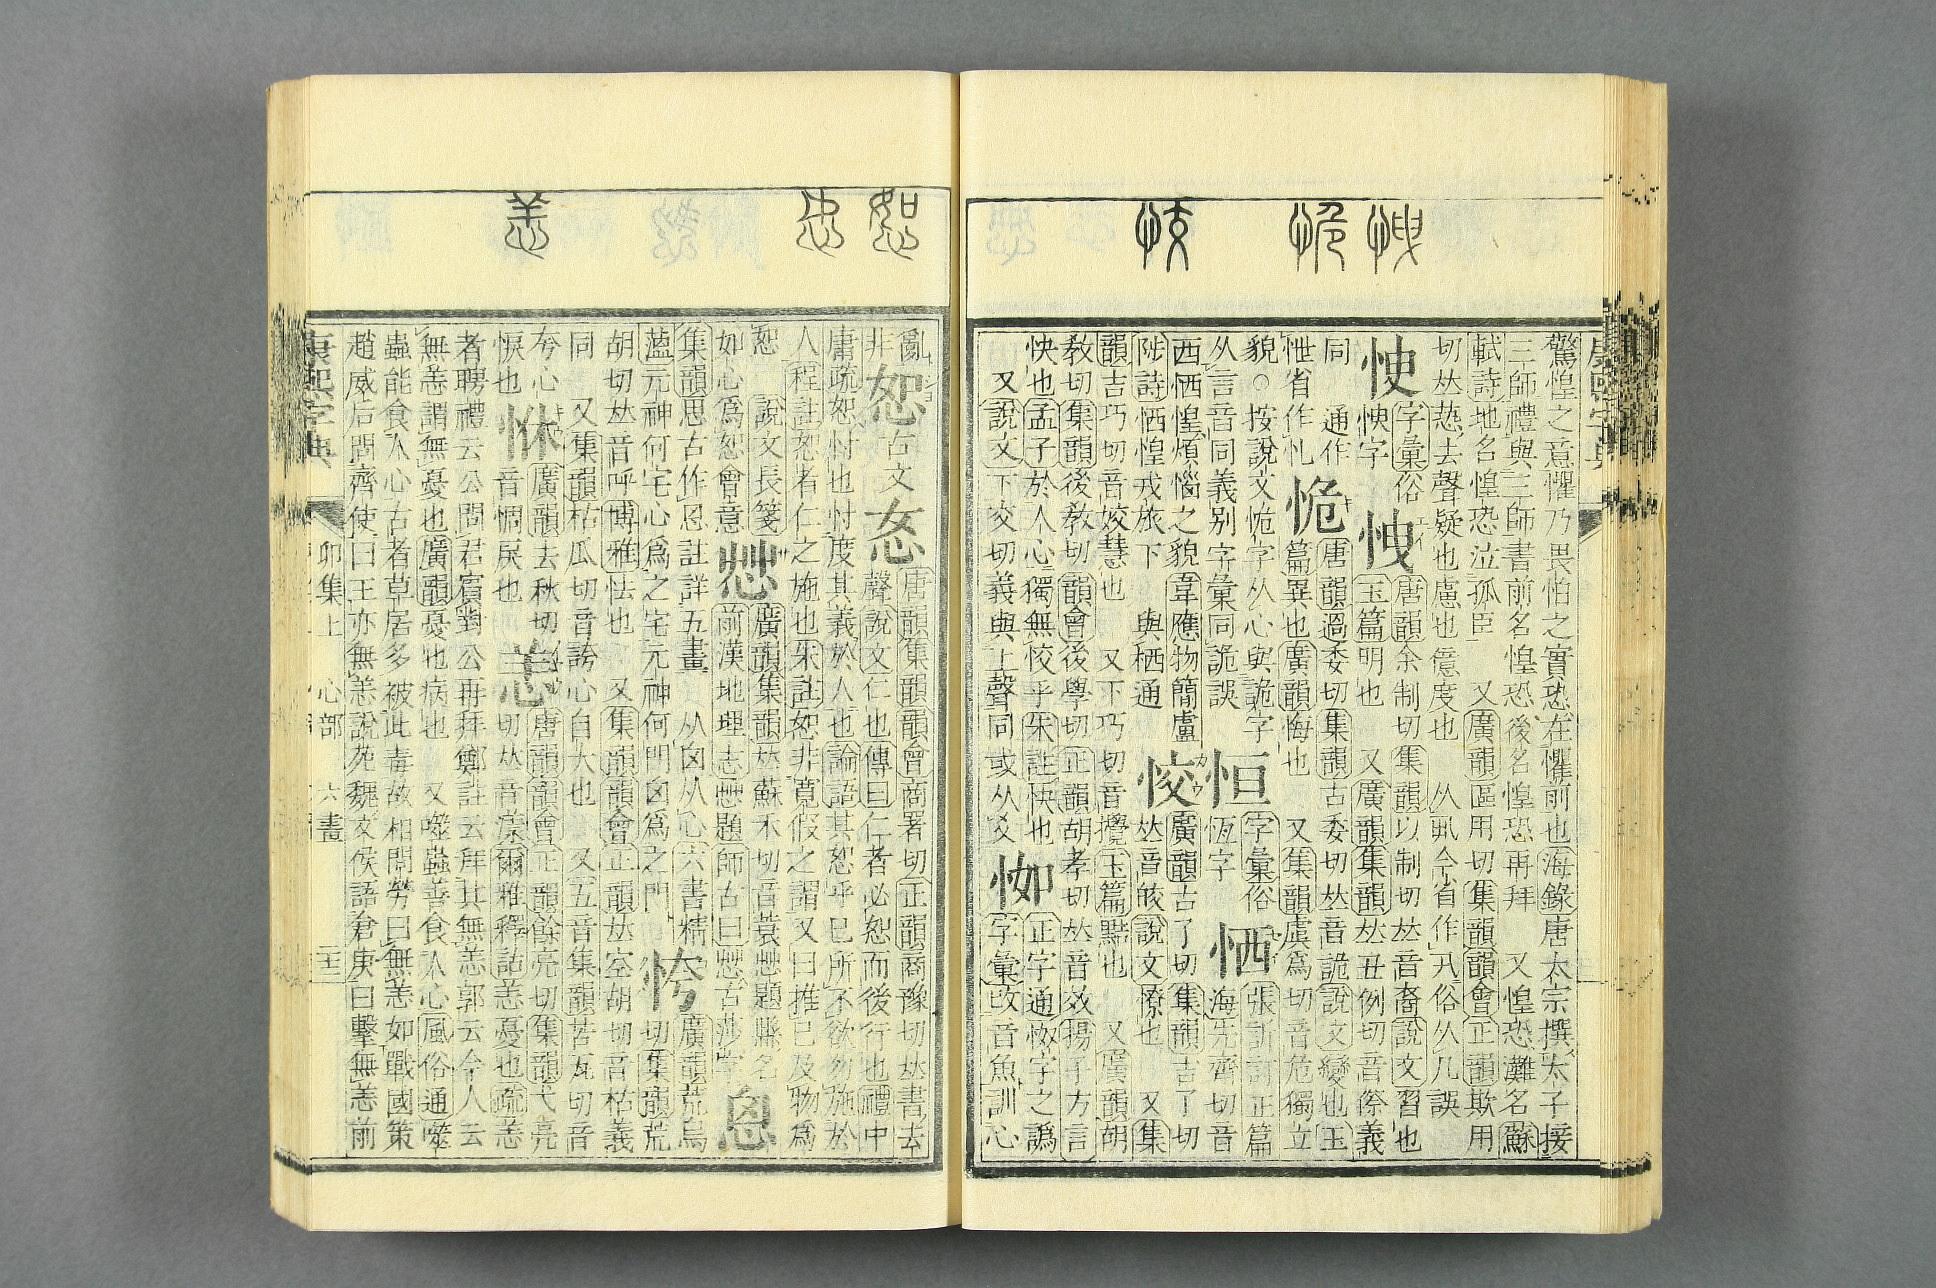 驚惶之意懼乃畏怕之實恐在懼前也海錄唐太宗撰太子接
三師禮與三師書前名惶恐後名惶恐再拜 又惶恐灘名蘇
軾詩地名惶恐泣孤臣 又廣韻區用切集韻韻會正韻欺用
切𠀤恐去聲疑也慮也億度也
字彙俗
怏字
唐韻余制切集韻以制切𠀤音裔說文習也
玉篇明也 又廣韻集韻𠀤丑例切音傺義
同 通作
忚省作札
恑
唐韻過委切集韻古委切𠀤音詭說文變也玉
篇異也廣韻悔也 又集韻虞爲切音危獨立
貌○按說文恑字从心與詭字
从言音同義別字彙同詭誤
恒
字彙俗
恆字
恓
海先齊切音
西恓惶煩惱之貌韋應物簡盧
陟詩恓惶戎旅下 與栖通
恔
廣韻古了切集韻吉了切
𠀤音皎說文憭也 又集
韻吉巧切音姣慧也 又下巧切音攪玉篇黠也 又廣韻胡
敎切集韻後敎切韻會後學切正韻胡孝切𠀤音效揚子方言
快也孟子於人心獨無恔乎朱註快也
又說文下交切義與上聲同或从爻
正字通怓字之譌
字彙改音魚訓心
亂
非
恕
古文
㣽
唐韻集韻韻會商署切正韻商豫切𠀤書去
聲說文仁也傳曰仁者必恕而後行也禮中
庸疏恕忖也忖度其義於人也論語其恕乎己所不欲勿施於
人程註恕者仁之施也朱註恕非寬假之謂又曰推己及物爲
恕 說文長箋
如心爲恕會意
廣韻集韻𠀤蘇禾切音蓑
題縣名
前漢地理志
題師古曰
古莎字
恖
集韻思古作恖註詳五畫 从囟从心六書精
薀元神何宅宅心爲之宅元神何門囟爲之門
恗
廣韻荒烏
切集韻荒
胡切𠀤音呼博雅怯也 又集韻韻會正韻𠀤空胡切音枯義
同 又集韻枯瓜切音誇心自大也 又五音集韻苦瓦切音
夸心
恘
廣韻去秋切
音惆戾也
恙
唐韻韻會正韻餘亮切集韻弋亮
切𠀤音漾爾雅釋詁恙憂也疏恙
者聘禮云公問君賓對公再拜鄭註云拜其無恙郭云今人云
無恙謂無憂也廣韻憂也病也 又噬蟲善食人心風俗通噬
蟲能食人心古者草居多被此毒故相問勞曰無恙如戰國策
趙威后問齊使曰王亦無恙說苑魏文侯語倉庚曰擊無恙前
康熙字典 卯集上 心部 六畫